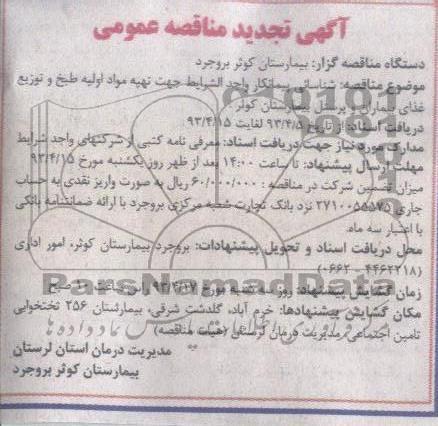 آگهی تجدید مناقصه عمومی
دستگاه مناقصه گزار: بیمارستان کوثر بروجرد
موضوع مناقصه: شناسائی پیمانکار واجد الشرایط جهت تهیه مواد اولیه طبخ و توزیع
غذای بیماران و پرسنل بیمارستان کوثر
دریافت اسناد: از تاریخ ۹۳/۴/۵ لغایت ۹۳/۴/۱۵
مدارک مورد نیاز جهت دریافت اسناد: معرفی نامه کتبی از شرکتهای واجد شرایط
مهلت ارسال پیشنهاد: تا ساعت ۱۴:۰۰ بعد از ظهر روز یکشنبه مورخ ۹۳/۴/۱۵
میزان تضمین شرکت در مناقصه : ۶۰/۰۰۰/۰۰۰ ریال به صورت واریز نقدی به حساب
جاری ۲۷۱۰۰۵۵۵۷۵ نزد بانک تجارت شعبه مرکزی بروجرد با ارائه ضمانتنامه بانکی
با اعتبار سه ماه.
محل دریافت اسناد و تحویل پیشنهادات: بروجرد بیمارستان کوثر، امور اداری
(۴۴۶۲۲۱۸ - ۰۶۶۲)
زمان گشایش پیشنهاد: روز سه شنبه مورخ ۹۳/۴/۱۷ راس ساعت ۱۰ صبح
مکان گشایش پیشنهادها: خرم آباد، گلدشت شرقی، بیمارستان ۲۵۶ تختخوابی
تامین اجتماعی مدیریت درمان لرستان (هیئت مناقصه)
مدیریت درمان استان لرستان
بیمارستان کوثر بروجرد
ParsNamadData